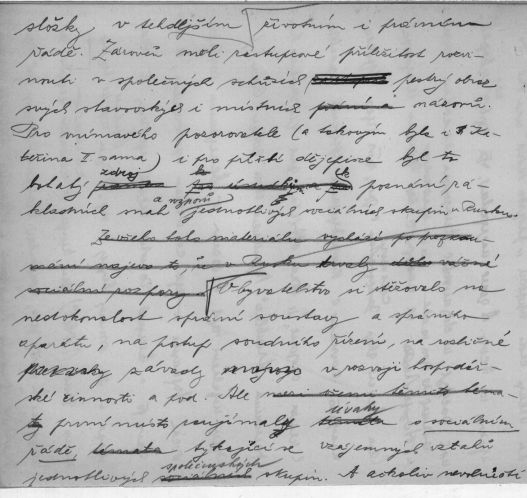 složky v tehdejším životním i právním
řádě. Zároveň měli zástupcové příležitost rozvi-
nouti v společných schůzích pestrý obraz
svých stavovských i místních přání a názorů.
Pro vnímavého pozorovatele (a takovým byla i Ka-
teřina I. sama) i pro příští dějepisce byl to
bohatý zdroj k poznání zá-
kladních snah a názorů jednotlivých sociálních skupin v Rusku.
Ze všeho toho materiálu vychází po prozkou-
mání najevo to, že v Rusku trvaly vážné
sociální rozpory. Obyvatelstvo si stěžovalo na
nedokonalost správní soustavy a správního
aparátu, na postup soudního řízení, na různé
závady v rozvoji hospodář-
ské činnosti a pod. Ale mezi všemi těmito téma-
ty první místo zaujímaly úvahy o sociálním
řádě, témata týkající se vzájemných vztahů
jednotlivých společenských skupin. A ačkoliv nevolníci